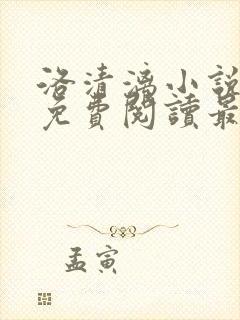 洛清漓小說
免費閱讀最
孟寅